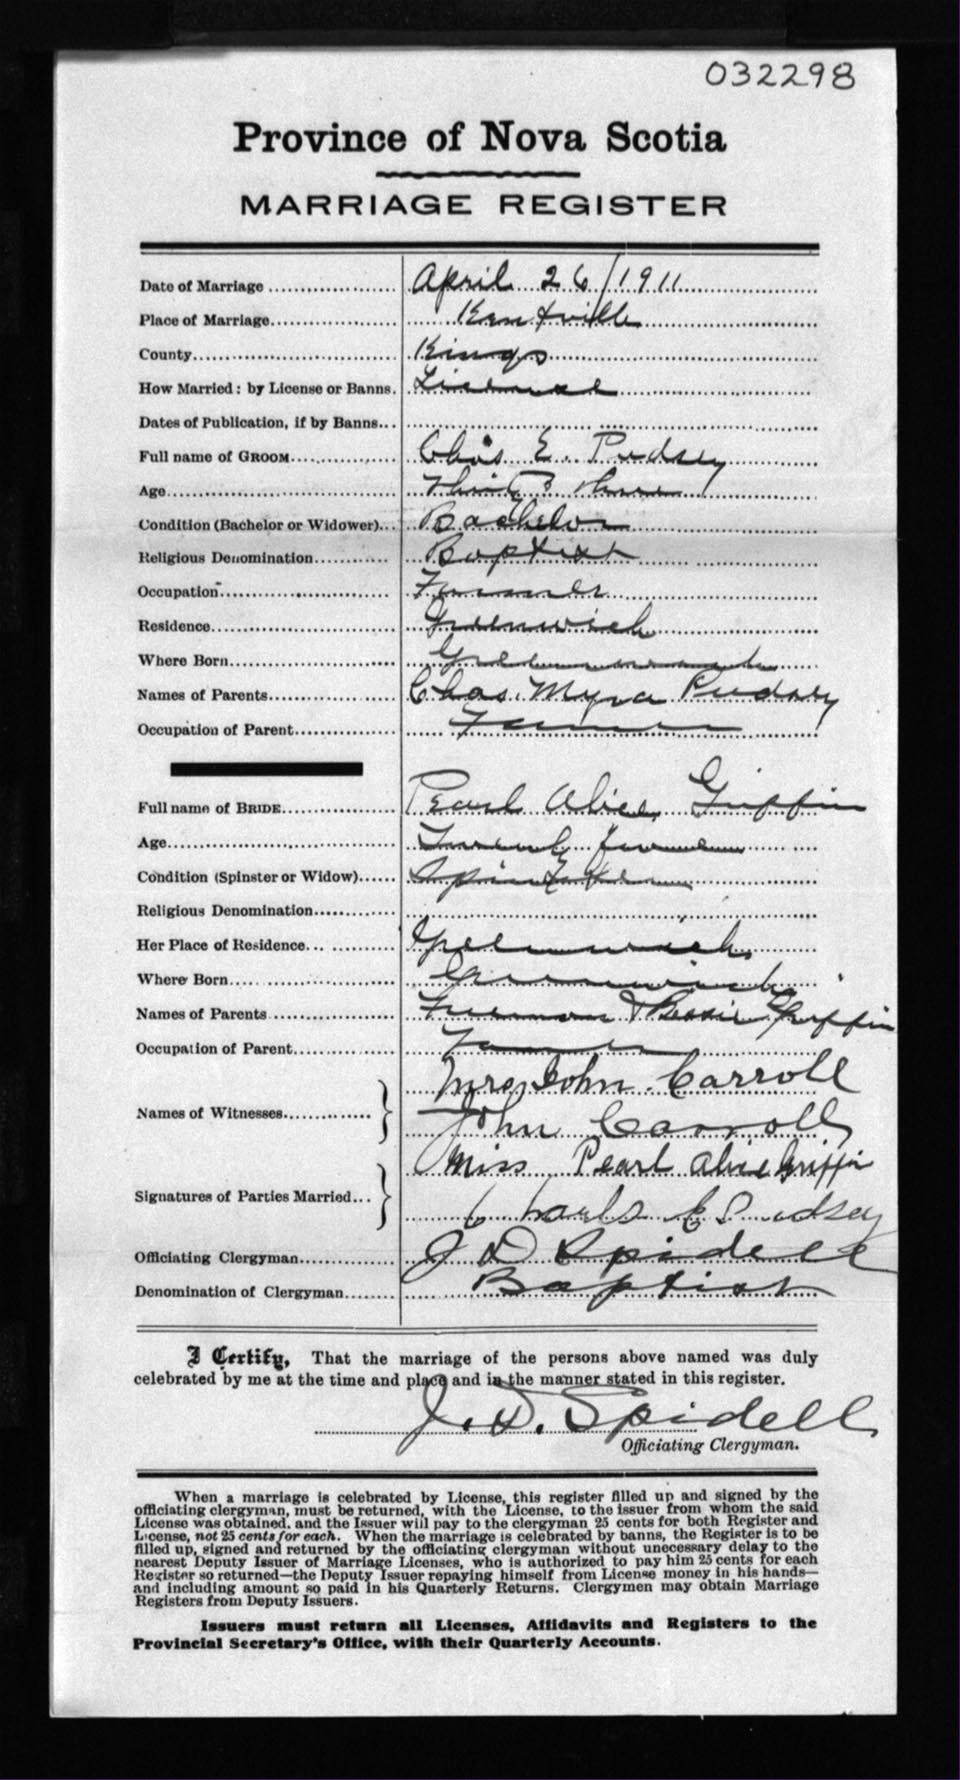 032298
Province of Nova Scotia
MARRIAGE REGISTER
Date of Marriage April 26/1911
Place of Marriage Kentville
County Kings
How Married: by License or Banns. License
Dates of Publication, if by Banns
Full name of GROOM Chas E. Pudsey
Age Thirty three
Condition (Bachelor or Widower) Bachelor
Religious Denomination Baptist
Occupation Farmer
Residence Greenwich
Where Born Greenwich
Names of Parents Chas. Myra Pudsey
Occupation of Parent Farmer
Full name of BRIDE Pearl Alice Griffin
Age Twenty
Condition (Spinster or Widow) Spinster
Religious Denomination
Her Place of Residence Greenwich
Where Born Greenwich
Names of Parents Freeman & Bessie Griffin
Occupation of Parent Farmer
Mrs John Carroll
Names of Witnesses
John Carroll
Miss Pearl Alice Griffin
Signatures of Parties Married
Charls E Pudsey
Officiating Clergyman J D Spidell
Denomination of Clergyman Baptist
I Certify, That the marriage of the persons above named was duly
celebrated by me at the time and place and in the manner stated in this register.
J. D. Spidell
Officiating Clergyman.
When a marriage is celebrated by License, this register filled up and signed by the
officiating clergyman, must be returned, with the License, to the issuer from whom the said
License was obtained, and the Issuer will pay to the clergyman 25 cents for both Register and
License, not 25 cents for each. When the marriage is celebrated by banns, the Register is to be
filled up, signed and returned by the officiating clergyman without unecessary delay to the
nearest Deputy Issuer of Marriage Licenses, who is authorized to pay him 25 cents for each
Register so returned—the Deputy Issuer repaying himself from License money in his hands—
and including amount so paid in his Quarterly Returns. Clergymen may obtain Marriage
Registers from Deputy Issuers.
Issuers must return all Licenses, Affidavits and Registers to the
Provincial Secretary's Office, with their Quarterly Accounts.